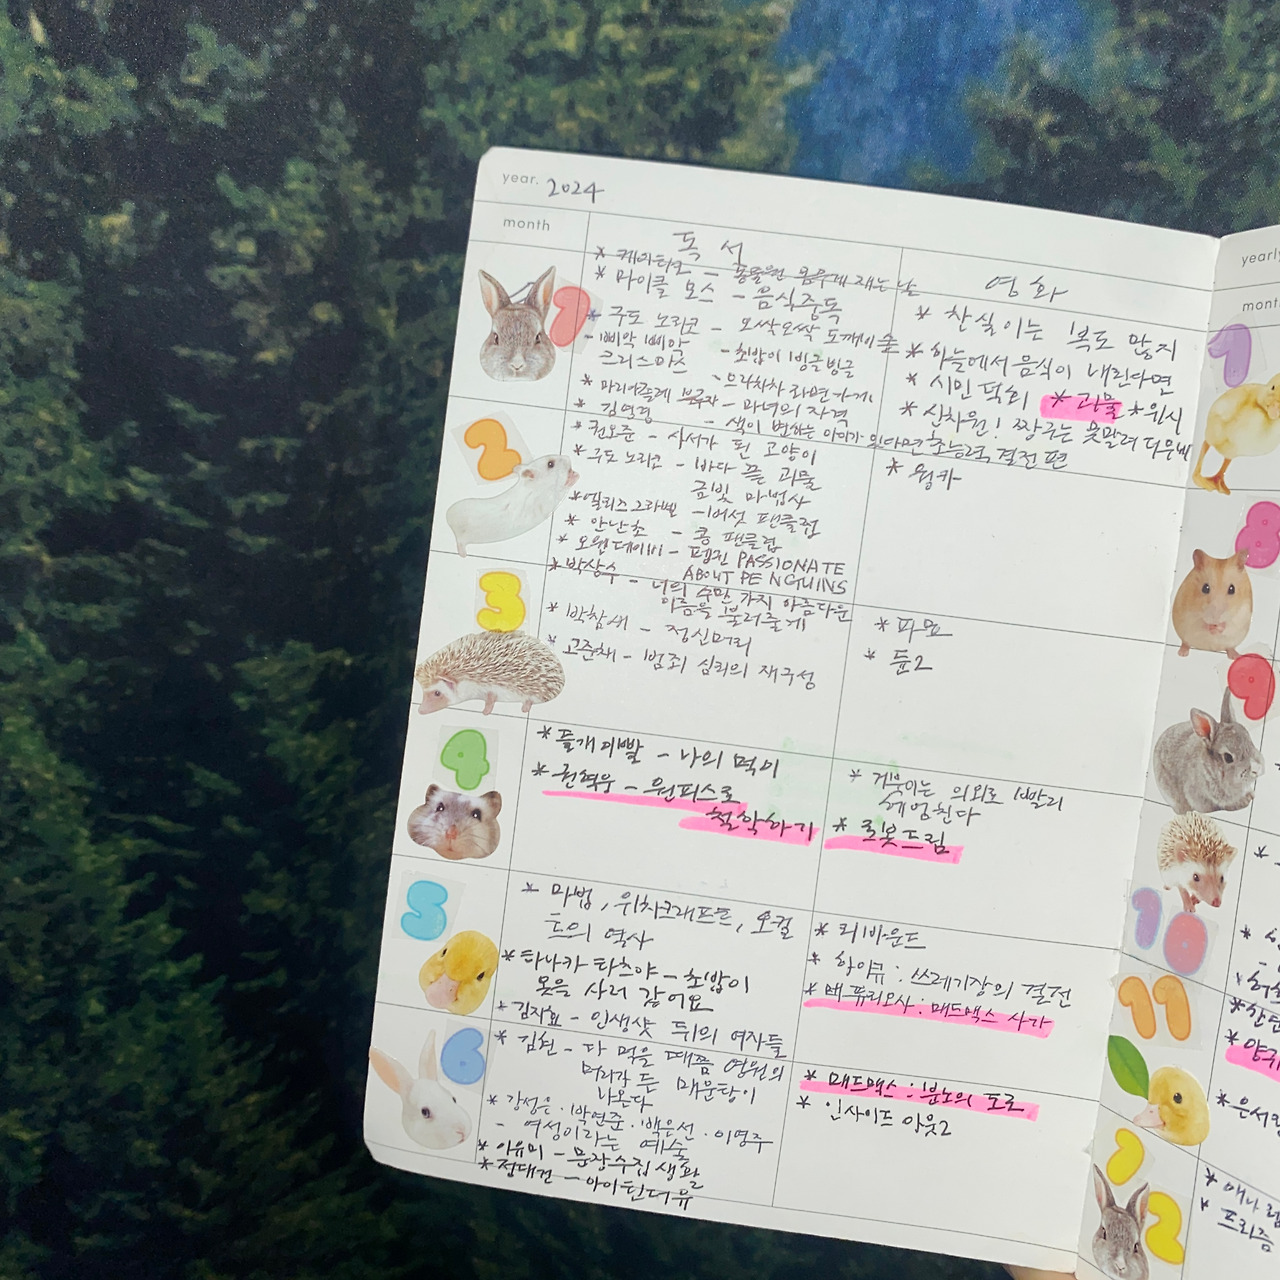 year. 2024
month
독서
* 케이티 - 동물원 몸무게 재는 날
* 마이클 모스 - 음식중독
* 구도 노리코 - 오싹오싹 도깨비숲
- 삐악 삐악 크리스마스
- 초밥이 빙글빙글
- 으라차차 라면가게
* 마리아 - 마녀의 자격
* 김 - 색이 변하는 아이가 있다면
영화
* 찬실이는 복도 많지
* 하늘에서 음식이 내린다면
* 시민 덕희 * 괴물 * 위시
* 신차원! 짱구는 못말려 더무비
초능력 결전편
1
2
* 권오준 - 사서가 된 고양이
* 구도 노리코 - 바다 끝 괴물
금빛 마법사
* 엘리즈 그라벨 - 버섯 팬클럽
* 안난초 - 콩 팬클럽
* 오웬 데이비 - 펭진 PASSIONATE
ABOUT PENGUINS
* 웡카
3
* 박상수 - 너의 수만 가지 아름다운
이름을 불러줄게
* 박참새 - 정신머리
* 고준채 - 범죄 심리의 재구성
* 파묘
* 듄2
4
* 들개이빨 - 나의 먹이
* 권혁웅 - 원피스로
철학하기
* 거북이는 의외로 빨리
헤엄친다
* 로봇드림
5
* 마법, 위치크래프트, 오컬
트의 역사
* 타나카 타츠야 - 초밥이
옷을 사러 갔어요
* 김지효 - 인생샷 뒤의 여자들
* 리바운드
* 하이큐 : 쓰레기장의 결전
* 퓨리오사 : 매드맥스 사가
6
* 김현 - 다 먹을 때쯤 영원의
머리가 든 매운탕이
나온다
* 강성은 · 박연준 · 백은선 · 이영주
- 여성이라는 예술
* 이유미 - 문장수집 생활
* 정대건 - 아이틴더유
* 매드맥스 : 분노의 도로
* 인사이드 아웃2
yearly
month
7
8
9
10
11
12